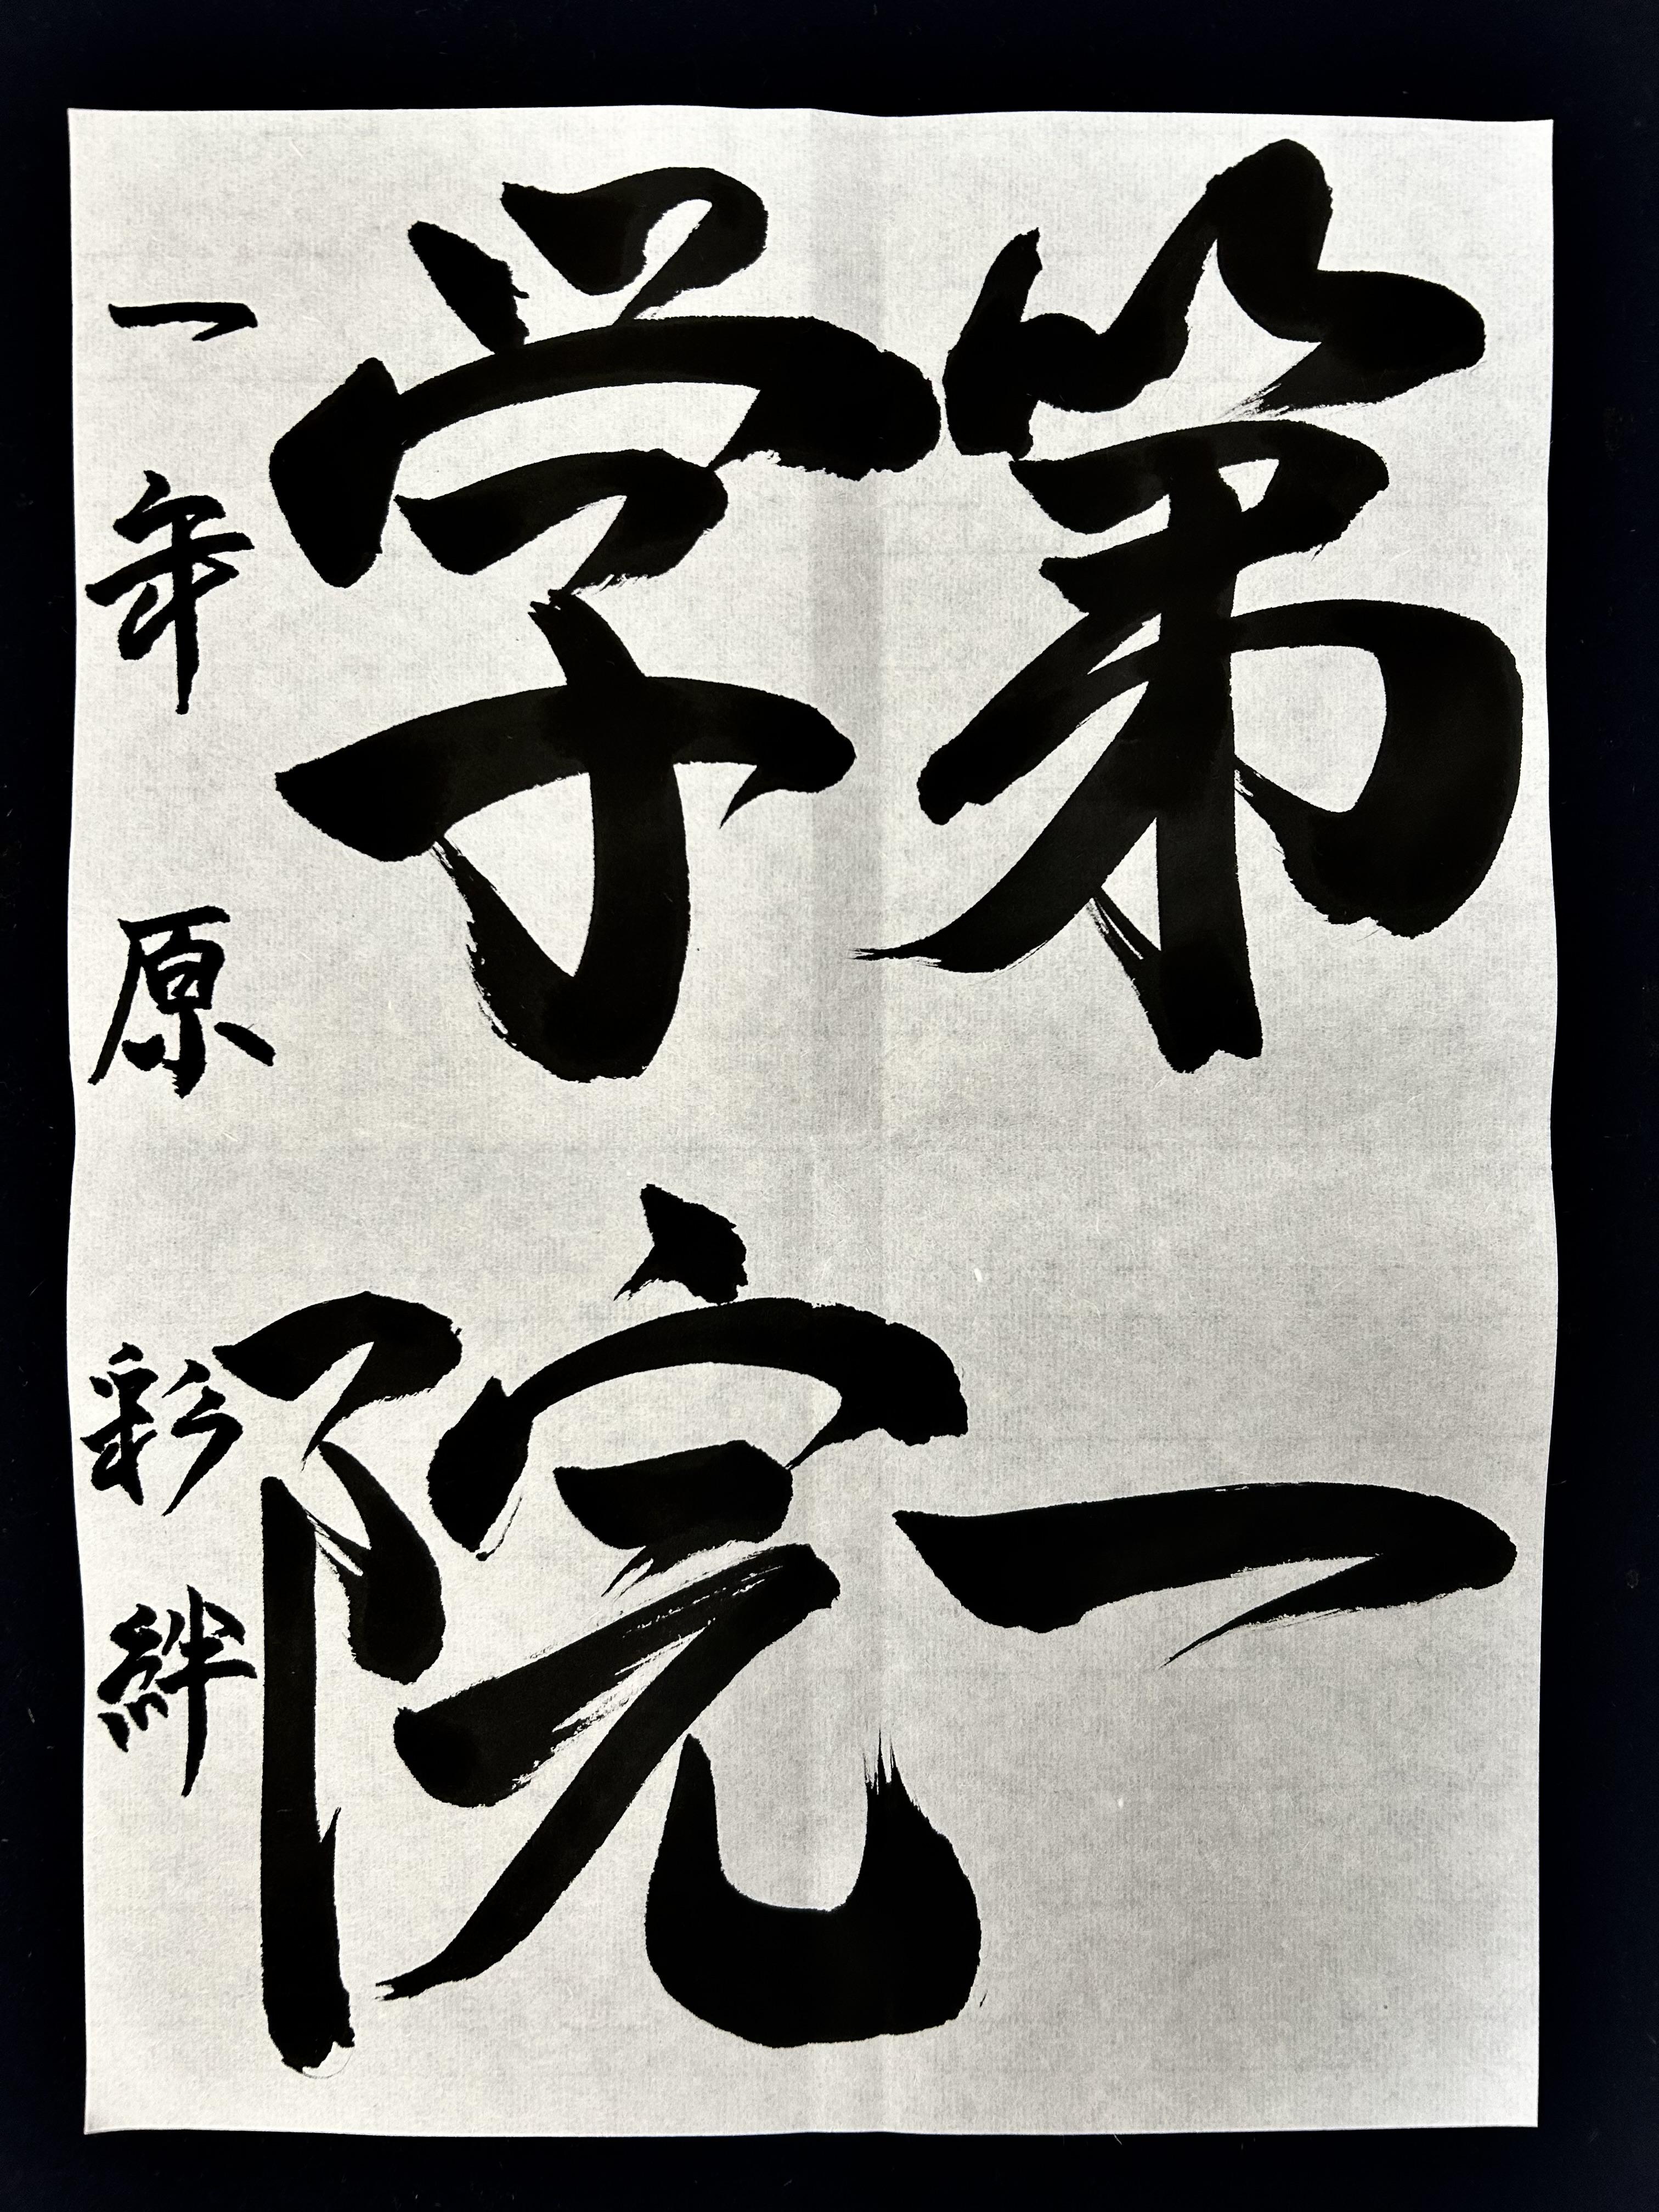 第一
学院
一年 原 彩絆